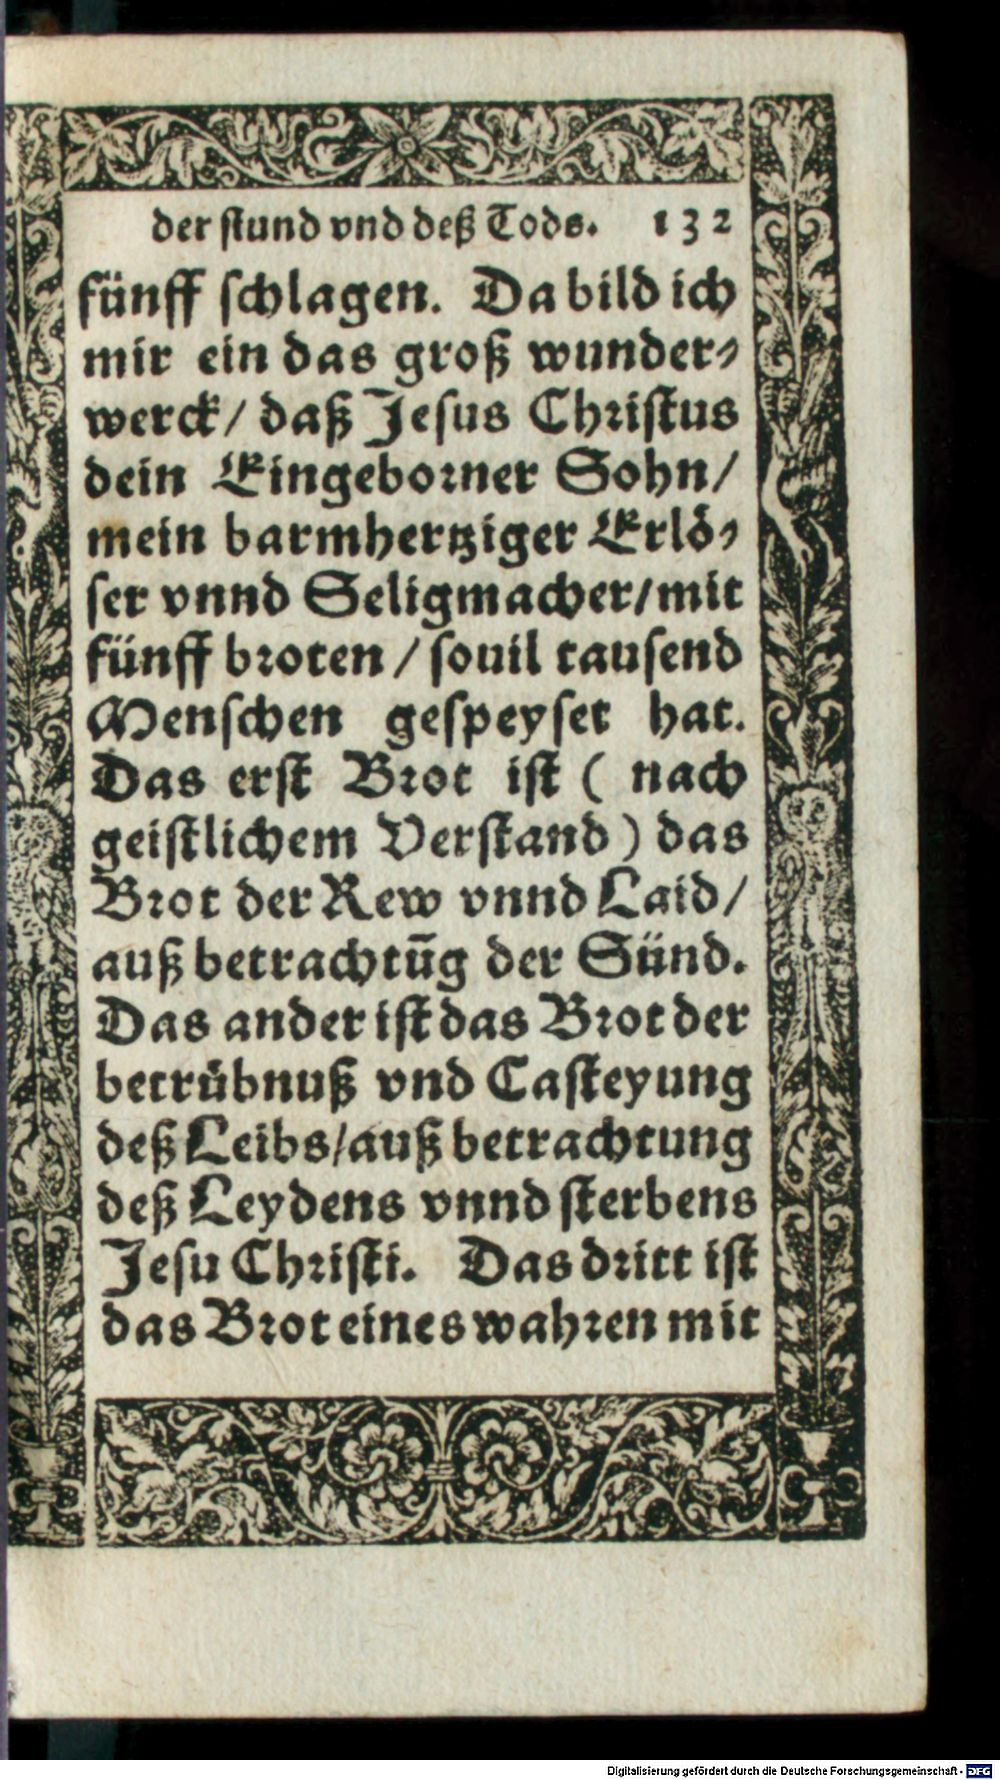 der ſtund vnd deß Tods. 132
fünff ſchlagen. Da bild ich
mir ein das groß wunder⸗
werck/ daß Jeſus Chriſtus
dein Eingeborner Sohn/
mein barmhertziger Erlö⸗
ſer vnnd Seligmacher/mit
fünff broten / ſouil tauſend
Menſchen geſpeyſet hat.
Das erſt Brot iſt ( nach
geiſtlichem Verſtand ) das
Brot der Rew vnnd Laid/
auß betrachtūg der Sünd.
Das ander iſt das Brot der
betrůbnuß vnd Caſteyung
deß Leibs/auß betrachtung
deß Leydens vnnd ſterbens
Jeſu Chriſti. Das dritt iſt
das Brot eines wahren mit
Digitalisierung gefördert durch die Deutsche Forschungsgemeinschaft - DFG